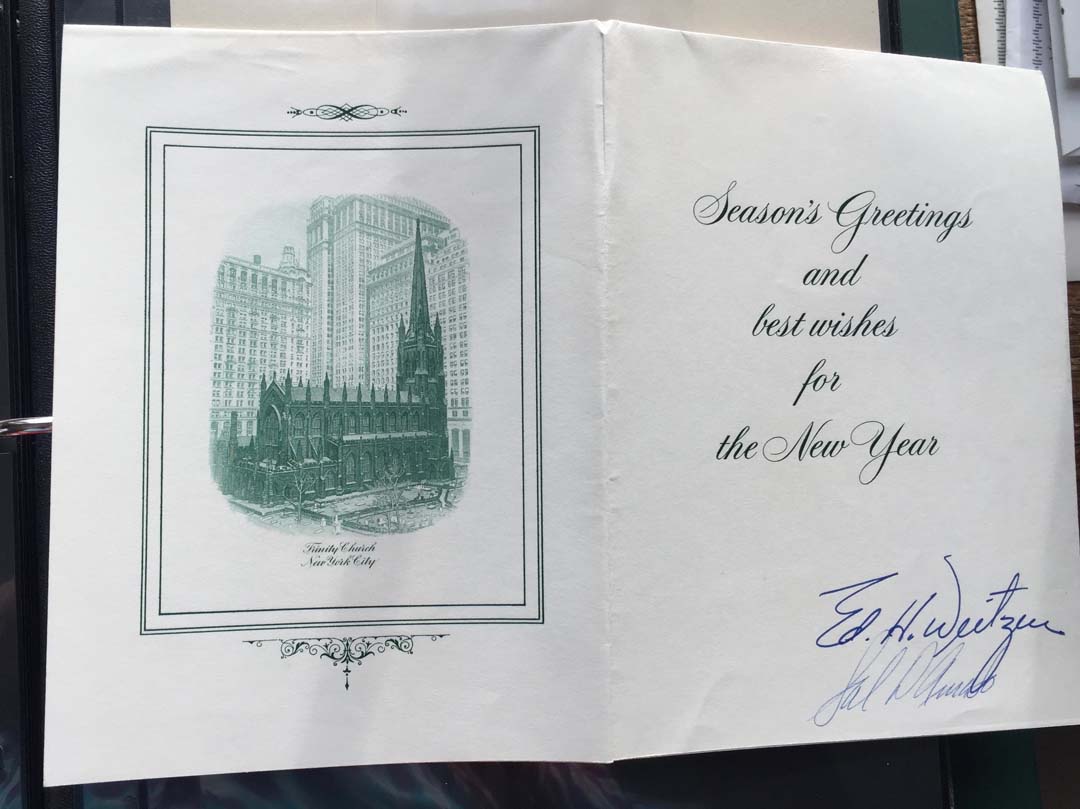 Trinity Church
New York City
Season's Greetings
and
best wishes
for
the New Year
Ed. H. Weitzen
Sal